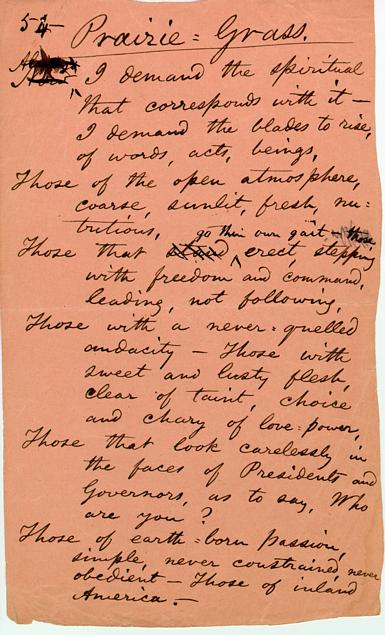 54
Prairie-Grass.
I demand the spiritual
that corresponds with it —
I demand the blades to rise,
of words, acts, beings,
Those of the open atmosphere,
coarse, sunlit, fresh, nu-
tritious,
go their own gait — those
Those that stand erect, stepping
with freedom and command,
leading, not following,
Those with a never-quelled
audacity — Those with
sweet and lusty flesh,
clear of taint, choice
and chary of love-power,
Those that look carelessly in
the faces of Presidents and
Governors, as to say, Who
are you?
Those of earth-born passion,
simple, never constrained, never
obedient — Those of inland
America. —